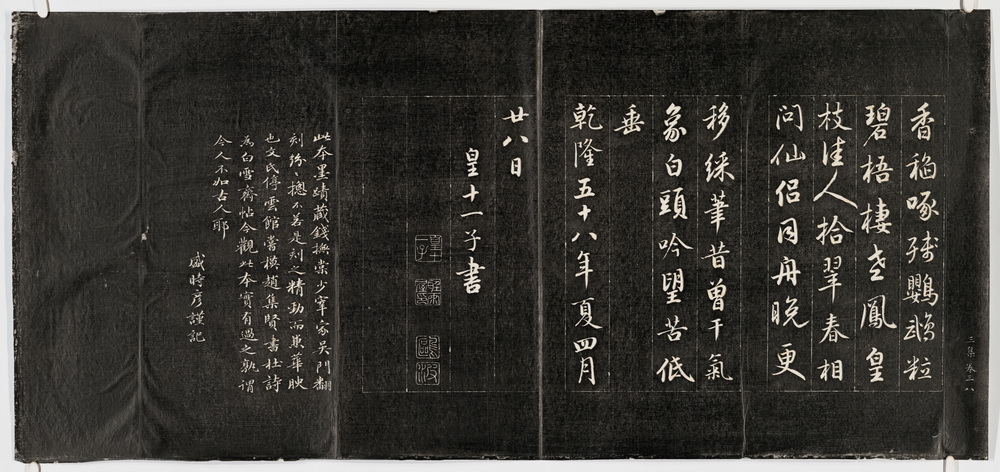 香稻啄殘鸚鵡粒
碧梧棲老鳳皇
枝佳人拾翠春相
問仙侣同舟晚更
移綵筆昔曾干氣
象白頭吟望苦低
垂
乾隆五十八年夏四月
廿八日
皇十一子書
皇十一子
此本墨蹟藏錢撫棠少宰家吳門翻
刻紛〻揔不若是刻之精勁而兼華腴
也文氏停雲館嘗橅趙集賢書杜詩
為白雪齋帖今觀此本實有過之孰謂
今人不如古人耶
盛時彦謹記
三集 卷二 八